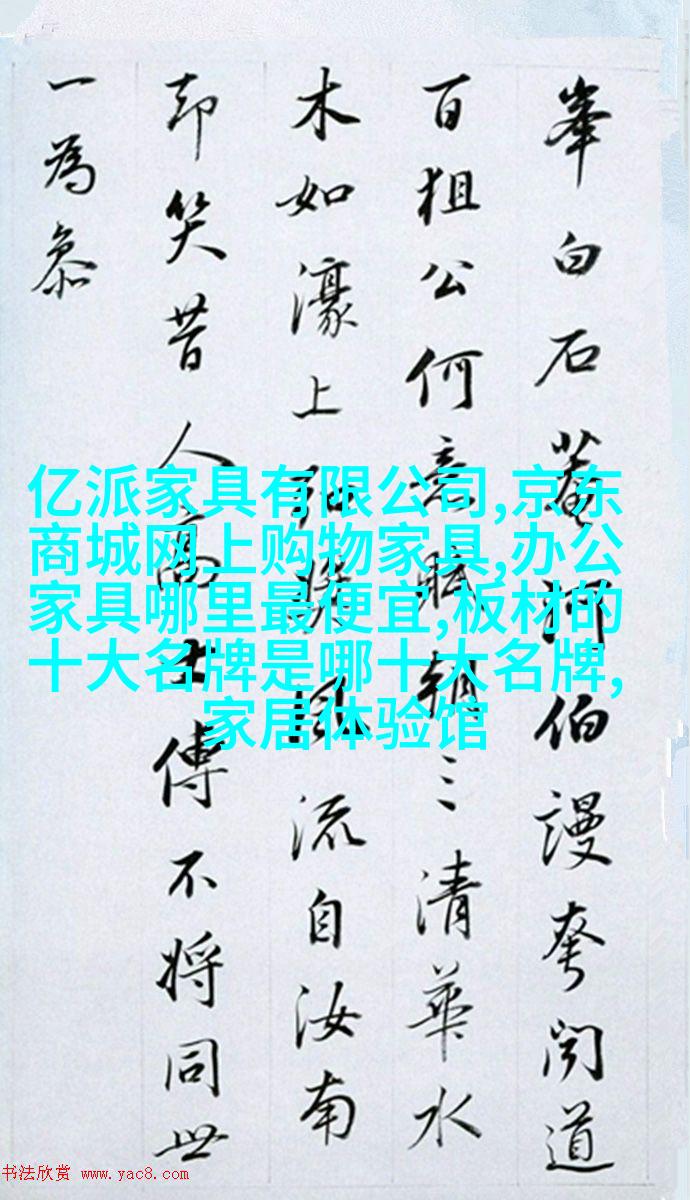 峯白石菴河伯謾夸闻道
百狙公何意賦朝三清華水
木如濠上風流自汝南
却笑昔人高士傳不将同世
一為恭
亿派家具有限公司,京东
商城网上购物家具,办公
家具哪里最便宜,板材的
十大名牌是哪十大名牌,
家居体验馆
书法欣赏 www.yac8.com